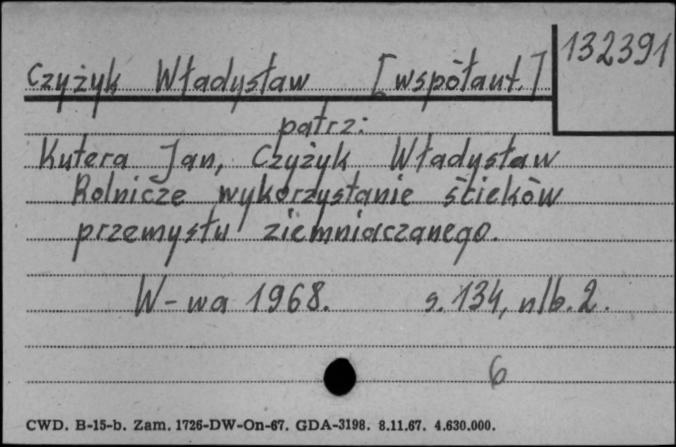 132391
Czyżyk Władysław [współaut.]
patrz:
Kutera Jan, Czyżyk Władysław
Rolnicze wykorzystanie ścieków
przemysłu ziemniaczanego.
W-wa 1968. s. 134, nlb. 2.
6
CWD. B-15-b. Zam. 1726-DW-On-67. GDA-3198. 8.11.67. 4.630.000.